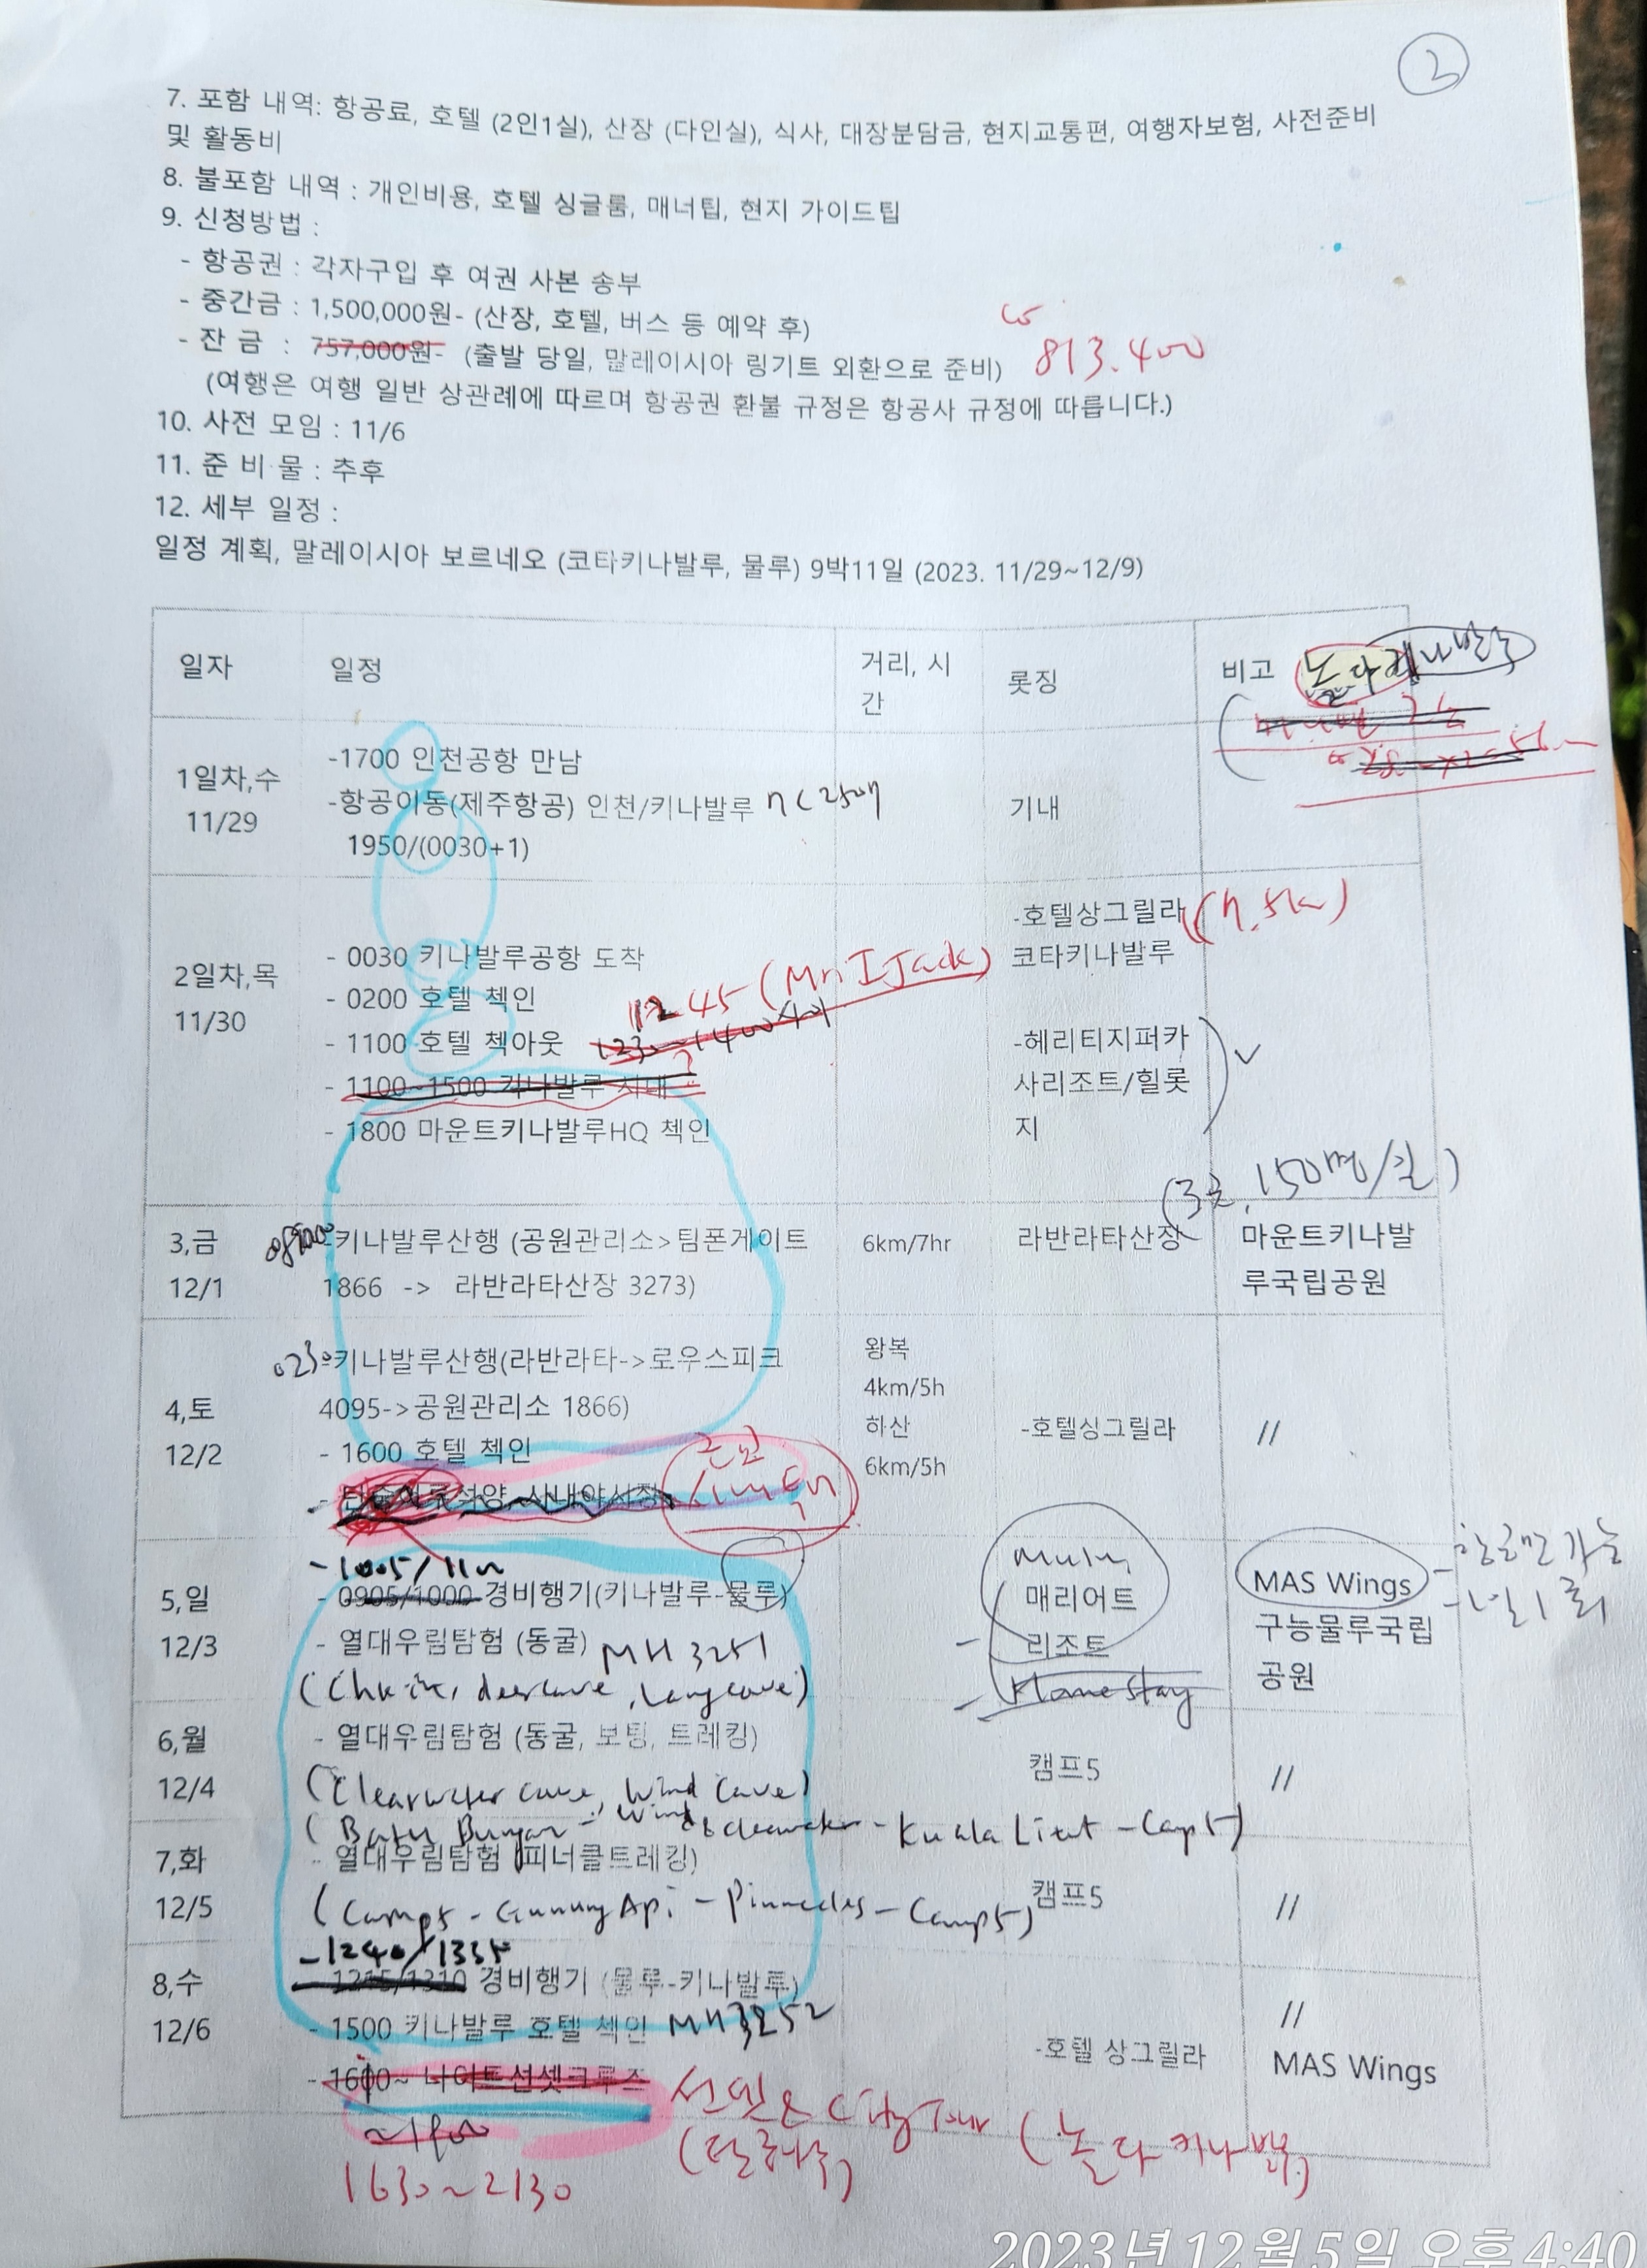 ②
7. 포함 내역: 항공료, 호텔 (2인1실), 산장 (다인실), 식사, 대장분담금, 현지교통편, 여행자보험, 사전준비
및 활동비
8. 불포함 내역 : 개인비용, 호텔 싱글룸, 매너팁, 현지 가이드팁
9. 신청방법 :
- 항공권 : 각자구입 후 여권 사본 송부
- 중간금 : 1,500,000원- (산장, 호텔, 버스 등 예약 후)
- 잔 금 : 757,000원- (출발 당일, 말레이시아 링기트 외환으로 준비) 813.400
(여행은 여행 일반 상관례에 따르며 항공권 환불 규정은 항공사 규정에 따릅니다.)
10. 사전 모임 : 11/6
11. 준 비 물 : 추후
12. 세부 일정 :
일정 계획, 말레이시아 보르네오 (코타키나발루, 물루) 9박11일 (2023. 11/29~12/9)
일자 일정 거리, 시간 롯징 비고
1일차,수
11/29
-1700 인천공항 만남
-항공이동(제주항공) 인천/키나발루
1950/(0030+1)
기내
2일차,목
11/30
- 0030 키나발루공항 도착
- 0200 호텔 첵인
- 1100 호텔 첵아웃
1245 (Mr. I Jack)
- 1100~1500 키나발루 시내
- 1800 마운트키나발루HQ 첵인
-호텔상그릴라
코타키나발루
-헤리티지퍼카
사리조트/힐롯
지
3,금
12/1
키나발루산행 (공원관리소>팀폰게이트
1866 -> 라반라타산장 3273)
6km/7hr
라반라타산장
150명/일)
마운트키나발
루국립공원
4,토
12/2
0230 키나발루산행(라반라타->로우스피크
4095->공원관리소 1866)
- 1600 호텔 첵인
왕복
4km/5h
하산
6km/5h
-호텔싱그릴라
//
5,일
12/3
-1005/1100
- 0905/1000 경비행기(키나발루-물루)
- 열대우림탐험 (동굴) MH 3251
deercave, Langcave)
Mulu
매리어트
리조트
Homestay
MAS Wings
구능물루국립
공원
6,월
12/4
- 열대우림탐험 (동굴, 보팅, 트레킹)
(Clearwater cave, Wind Cave)
- Kuala Litut - Camp5)
캠프5
//
7,화
12/5
- 열대우림탐험 (피너클트레킹)
(Camp5 - Gunung Api - Pinnacles - Camp5)
캠프5
//
8,수
12/6
-1240/1335
- 1215/1310 경비행기 (물루-키나발루)
- 1500 키나발루 호텔 첵인 MH3252
- 1600~ 나이트선셋크루즈
~1800
1630~2130
선셋 & City Tour
(놀다키나발루)
-호텔 상그릴라
//
MAS Wings
2023년 12월 5일 오후 4:40